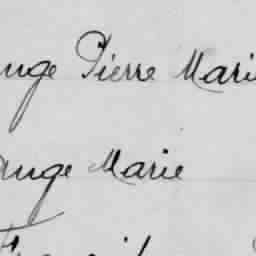 ange Pierre Mari
ange Marie